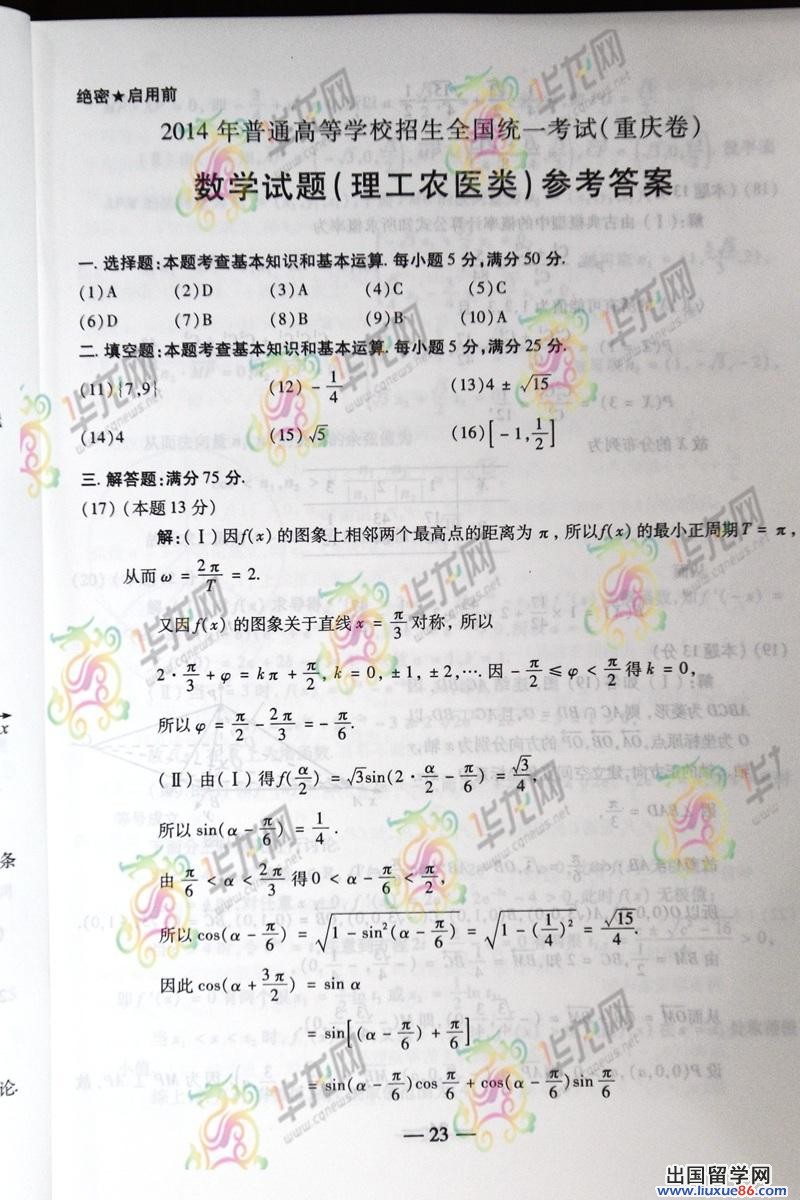 绝密★启用前
2014 年普通高等学校招生全国统一考试(重庆卷)
数学试题(理工农医类)参考答案
一. 选择题:本题考查基本知识和基本运算. 每小题 5 分,满分 50 分.
(1)A (2)D (3)A (4)C (5)C
(6)D (7)B (8)B (9)B (10)A
二. 填空题:本题考查基本知识和基本运算. 每小题 5 分,满分 25 分.
(11){7,9} (12) - 1/4 (13)4 ± √15
(14)4 (15)√5 (16)[ - 1, 1/2 ]
三. 解答题:满分 75 分.
(17) (本题 13 分)
解:(Ⅰ)因f(x) 的图象上相邻两个最高点的距离为 π , 所以f(x) 的最小正周期 T = π ,
从而 ω = 2π/T = 2.
又因 f(x) 的图象关于直线 x = π/3 对称, 所以
2 · π/3 + φ = kπ + π/2, k = 0, ± 1, ± 2,…. 因 - π/2 ≤ φ < π/2 得 k = 0,
所以 φ = π/2 - 2π/3 = - π/6.
(Ⅱ) 由(Ⅰ)得 f(α/2) = √3sin(2 · α/2 - π/6) = √3/4,
所以 sin(α - π/6) = 1/4 .
由 π/6 < α < 2π/3 得 0 < α - π/6 < π/2,
所以 cos(α - π/6) = √(1 - sin²(α - π/6)) = √(1 - (1/4)²) = √15/4.
因此 cos(α + 3π/2) = sin α
= sin[(α - π/6) + π/6]
= sin(α - π/6)cos π/6 + cos(α - π/6)sin π/6
— 23 —
条
论.
x
华龙网
www.cqnews.net
出国留学网
www.liuxue86.com